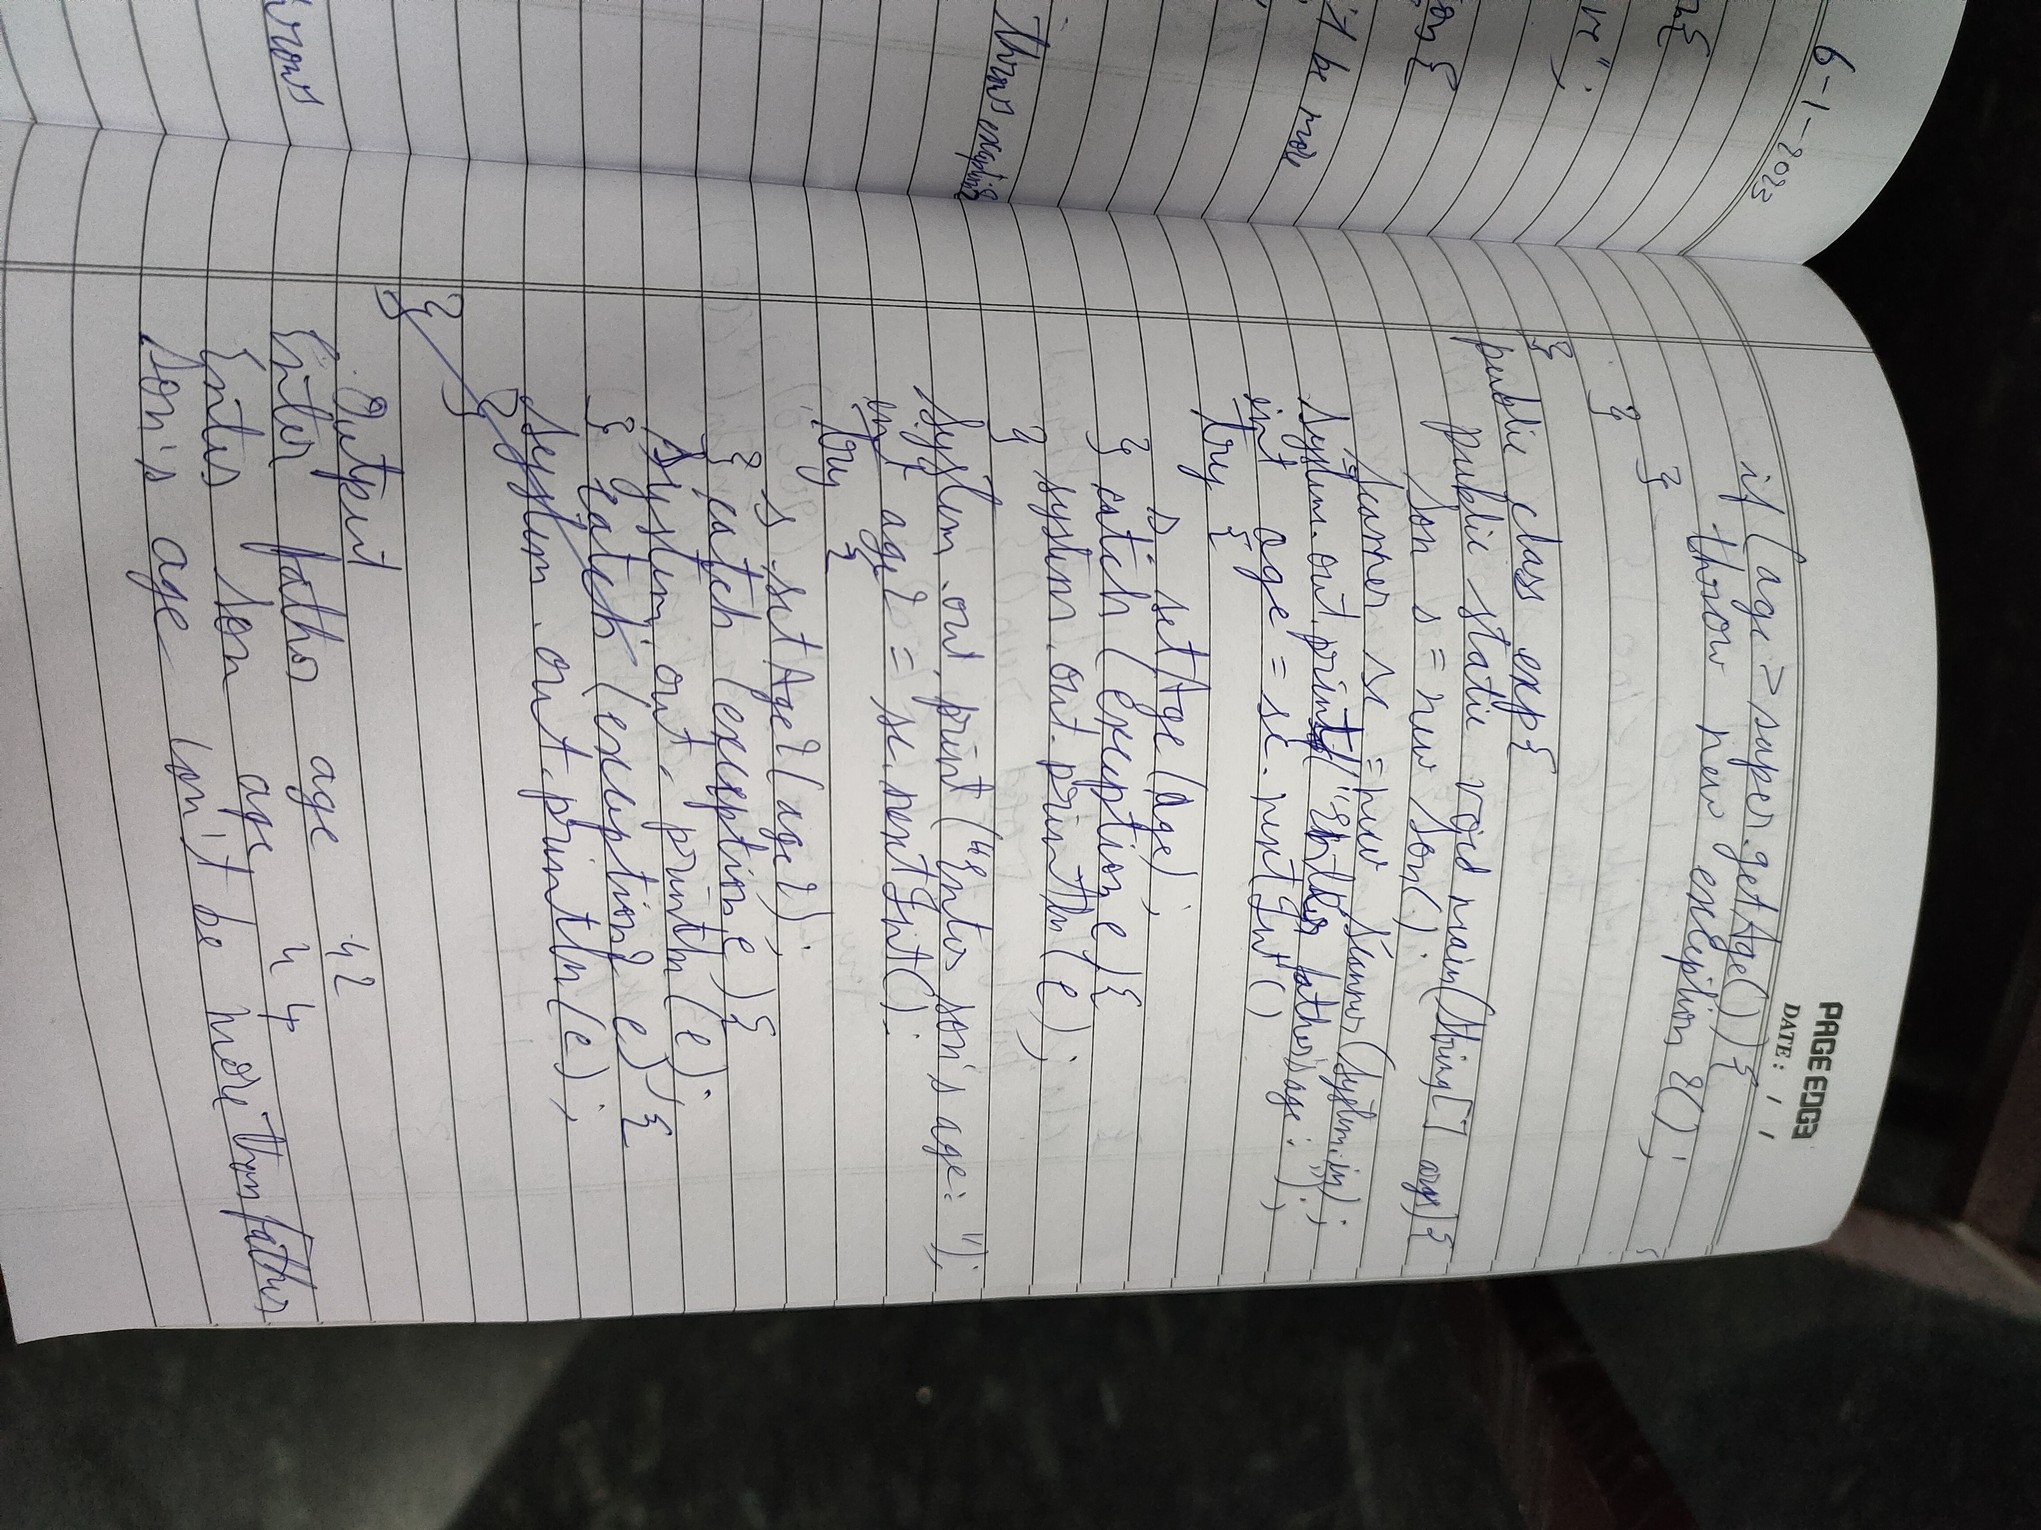 6-1-2023
ve";
it be more
throws exceptions
rows
PAGE EDGE
DATE: / /
if (age > super.getAge()) {
throw new exception 2();
}
}
}
public class exp{
public static void main(String[] args){
son s = new son();
Scanner sc = new Scanner(System.in);
System.out.print("Enter father's age: ");
int age = sc.nextInt();
try {
s.setAge(age);
} catch (exception e) {
system.out.println(e);
}
System.out.print("Enter son's age: ");
int age2 = sc.nextInt();
try {
s.setAge2(age2);
} catch (exception e) {
System.out.println(e);
} catch (exception2 e) {
System.out.println(e);
}
}
}
Output
Enter father age 42
Enter son age 44
Son's age won't be more than father